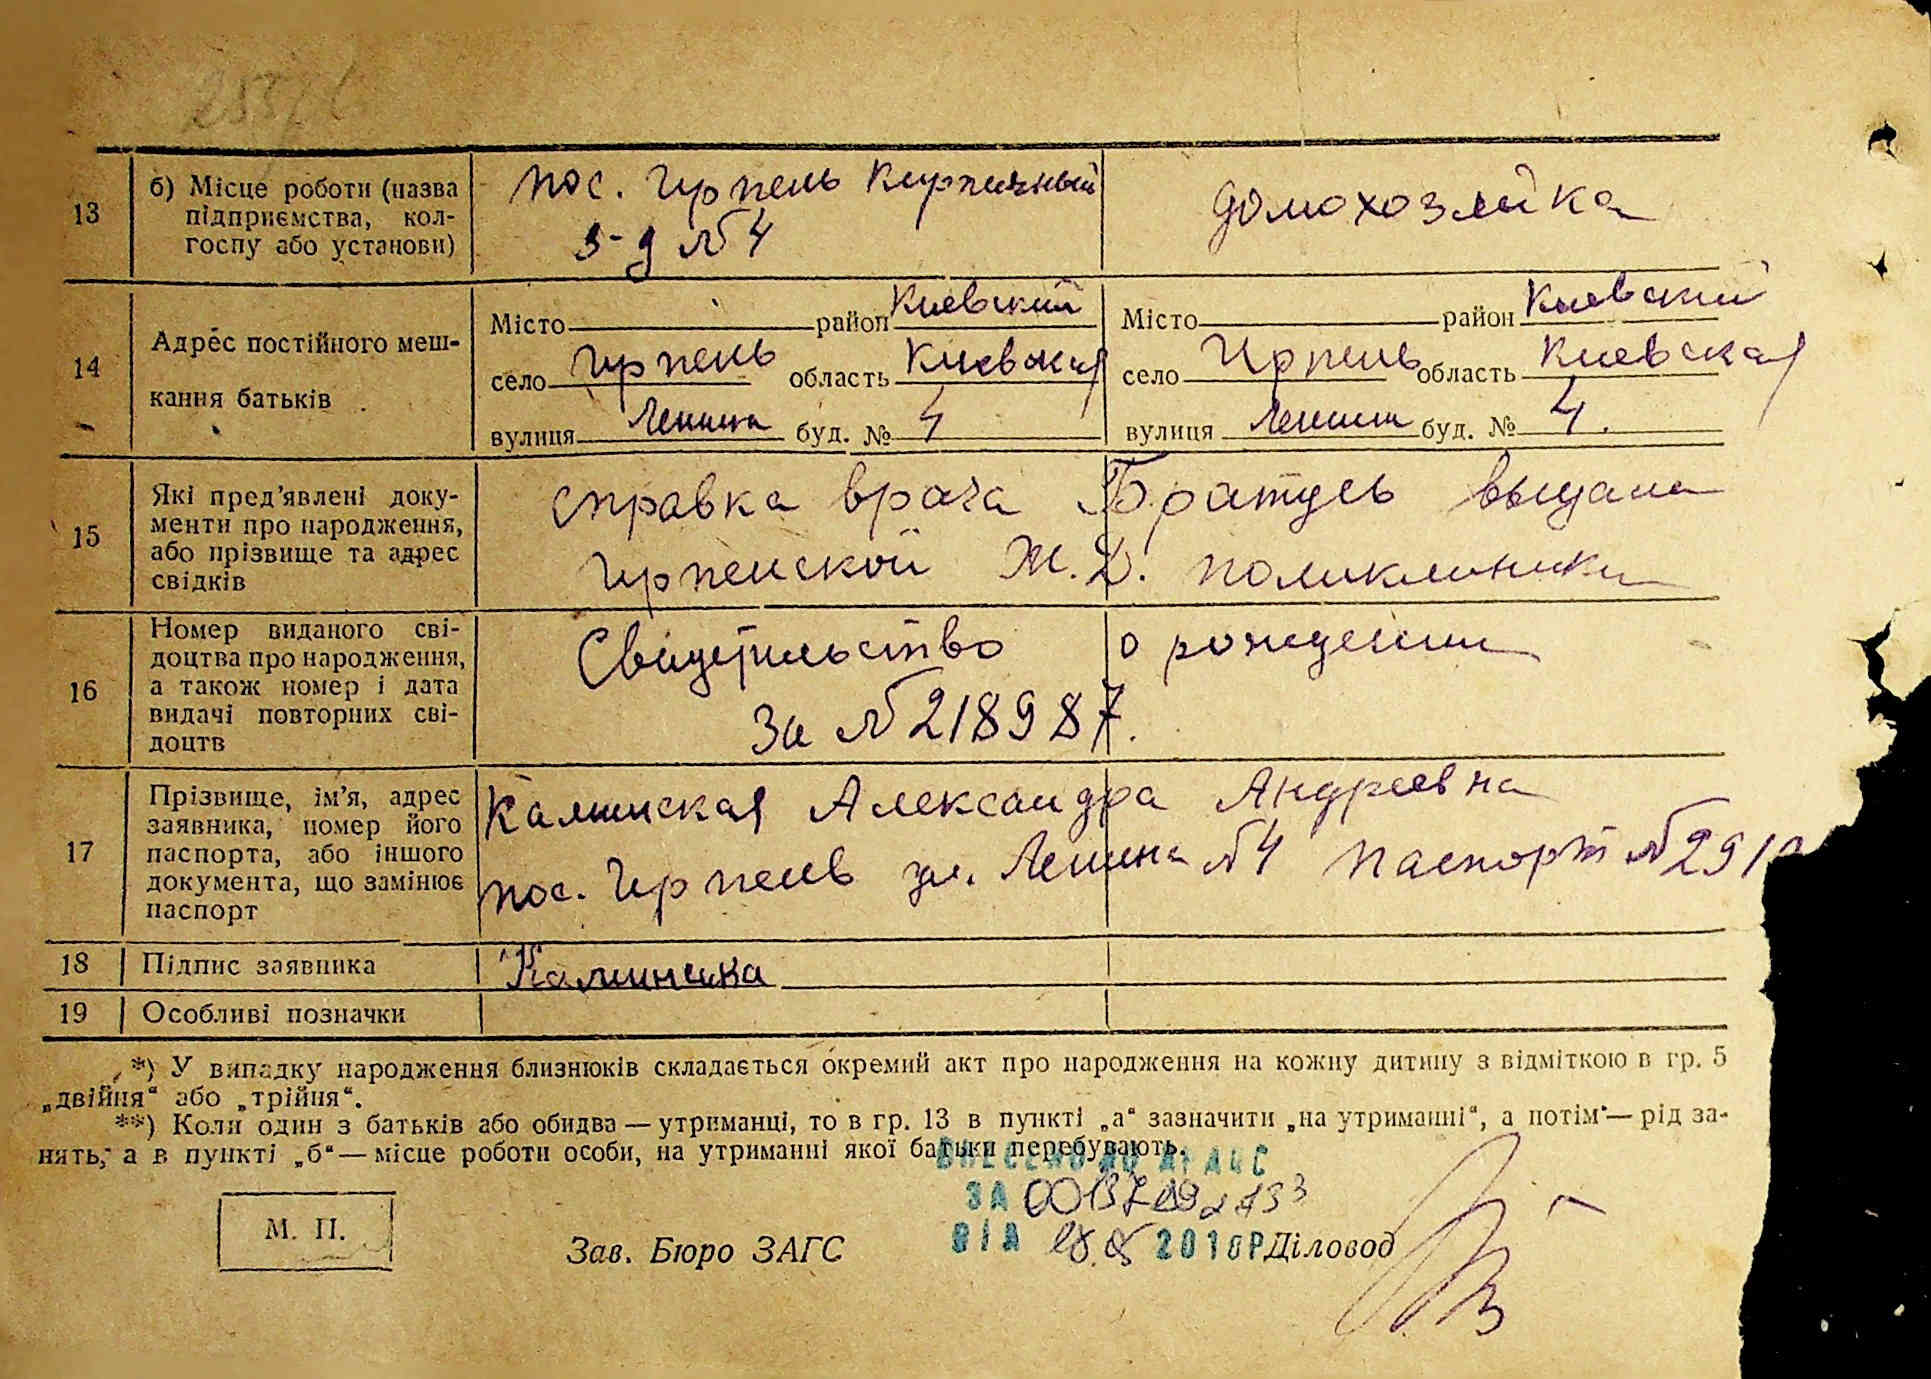 13
б) Місце роботи (назва
підприємства, кол-
госпу або установи)
пос. Ирпень Кирпичный
з-д №4
домохозяйка
14
Адрес постійного меш-
кання батьків
Місто район Киевский
село Ирпень область Киевская
вулиця Ленина буд. № 4
Місто район Киевский
село Ирпень область Киевская
вулиця Ленина буд. № 4.
15
Які пред'явлені доку-
менти про народження,
або прізвище та адрес
свідків
справка врача Братусь выдана
Ирпенской Ж.Д. поликлиники
16
Номер виданого сві-
доцтва про народження,
а також номер і дата
видачі повторних сві-
доцтв
Свидетельство о рождении
За №218987.
17
Прізвище, ім'я, адрес
заявника, номер його
паспорта, або іншого
документа, що замінює
паспорт
Калинская Александра Андреевна
пос. Ирпень ул. Ленина №4 Паспорт №291
18
Підпис заявника
Калинська
19
Особливі позначки
*) У випадку народження близнюків складається окремий акт про народження на кожну дитину з відміткою в гр. 5
„двійня“ або „трійня“.
**) Коли один з батьків або обидва — утриманці, то в гр. 13 в пункті „а“ зазначити „на утриманні“, а потім — рід за-
нять, а в пункті „б“ — місце роботи особи, на утриманні якої батьки перебувають.
ВНЕСЕНО ДО ДРАЦС
ЗА
ВІД 2018Р
М. П.
Зав. Бюро ЗАГС
Діловод